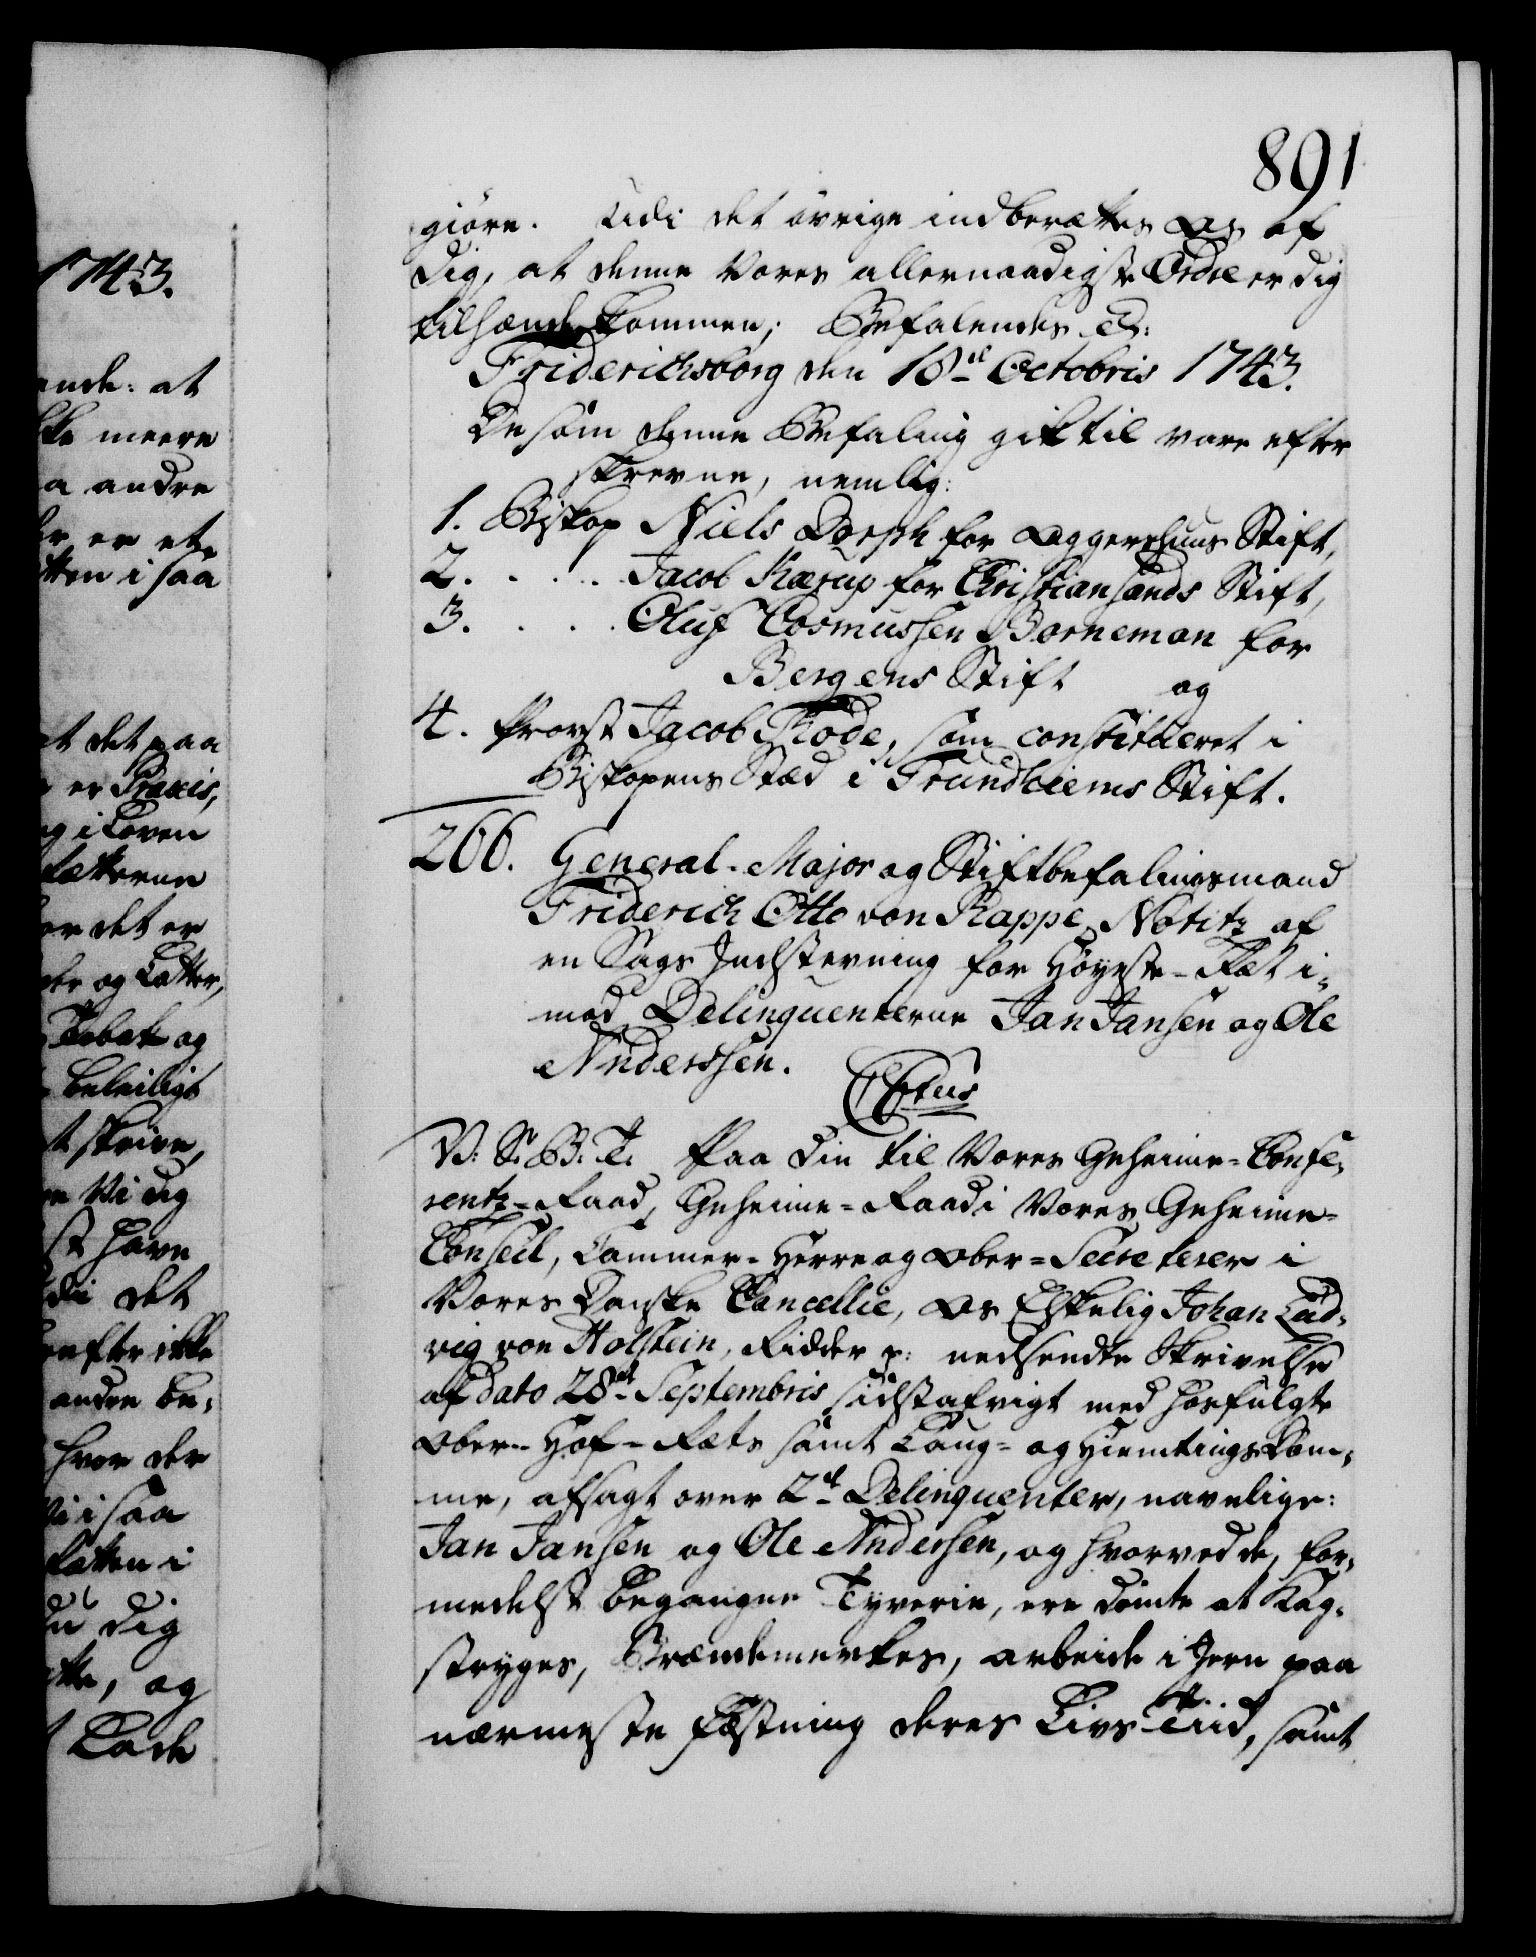 891
giöre. Udi det övrige indberættes Os af
Dig, at denne Vores allernaadigste Ordre er dig
tilhænde kommen; Befalendes etc:
Friderichsborg den 18de Octobris 1743.
De som denne Befaling gik til vare efter
skrevne, nemlig:
1. Biskop Niels Dorph for Aggershuus Stift,
2. . . . . Jacob Kærup for Christiansands Stift,
3. . . . . Oluf Cosmussen Borneman for
Bergens Stift og
4. Provst Jacob Rode, som constitueret i
Biskopens Stæd i Trundhiems Stift.
266. General-Major og Stiftbefalingsmand
Friderich Otto von Rappe Notitz af
en Sags Indstevning for Höyeste-Ræt i-
mod Delinquenterne Jan Jansen og Ole
Anderssen.
V: S. B: T. Paa Din til Vores Geheime-Confe-
rentz-Raad, Geheime-Raad i Vores Geheime-
Conseil, Cammer-Herre og Ober-Secreterer i
Vores Danske Cancellie, Os Elskelig Johan Lud-
vig von Holstein, Ridder p: nedsendte Skrivelse
af dato 28de Septembris sidstafvigt med hosfulgte
Ober-Hof-Rets samt Laug- og Hiemtings Dom-
me, afsagt over 2de Delinquenter, navnlige:
Jan Jansen og Ole Andersen, og hvorved de, for-
medelst begangne Tyverie, ere dömte at Kag-
stryges, Brændemerkes, arbeide i Jern paa
nærmeste Fæstning deres Livs Tiid, samt
1743.
ende: at
ke meere
a andre
er er et
tten i saa
et det paa
er Praxis,
og i Loven
Rætterne
or det er
og Latter,
Debat og
beleiligt
t skrive,
Vi dig
st have
di det
efter ikke
andre be-
hvor der
Vi i saa
Retten i
du dig
tte, og
Lade